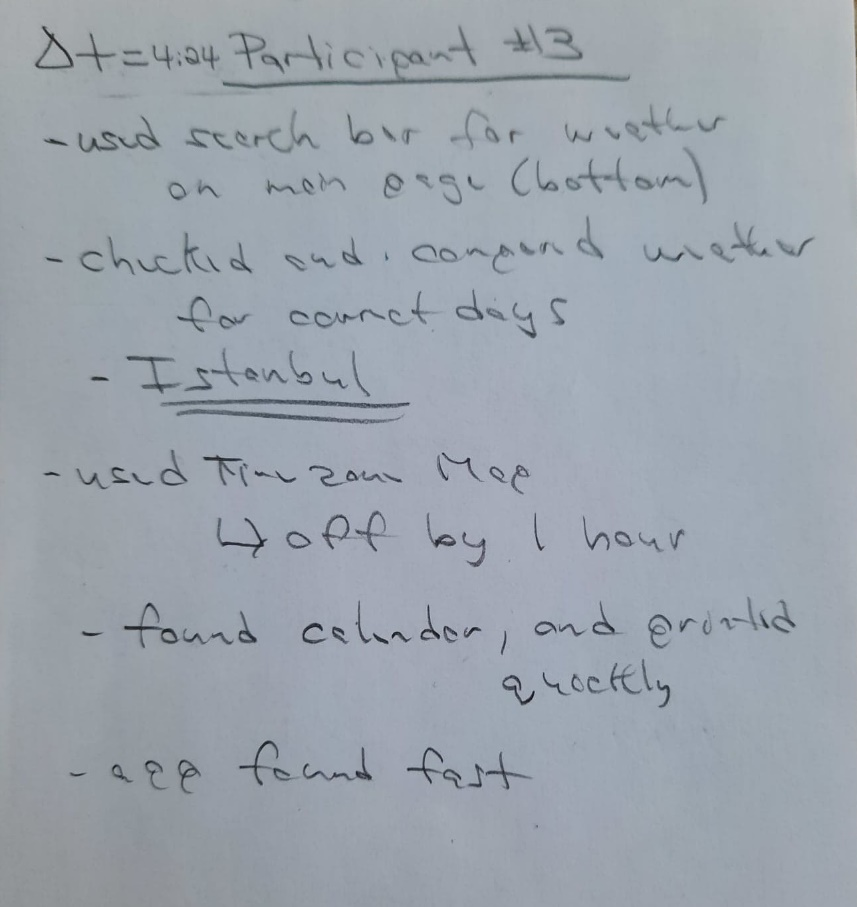 Δt=4:24 Participant #3
- used search bar for weather
on main page (bottom)
- checked and compared weather
for correct days
- Istanbul
- used Time zone Map
↳ off by 1 hour
- found calendar, and printed
quickly
- app found fast